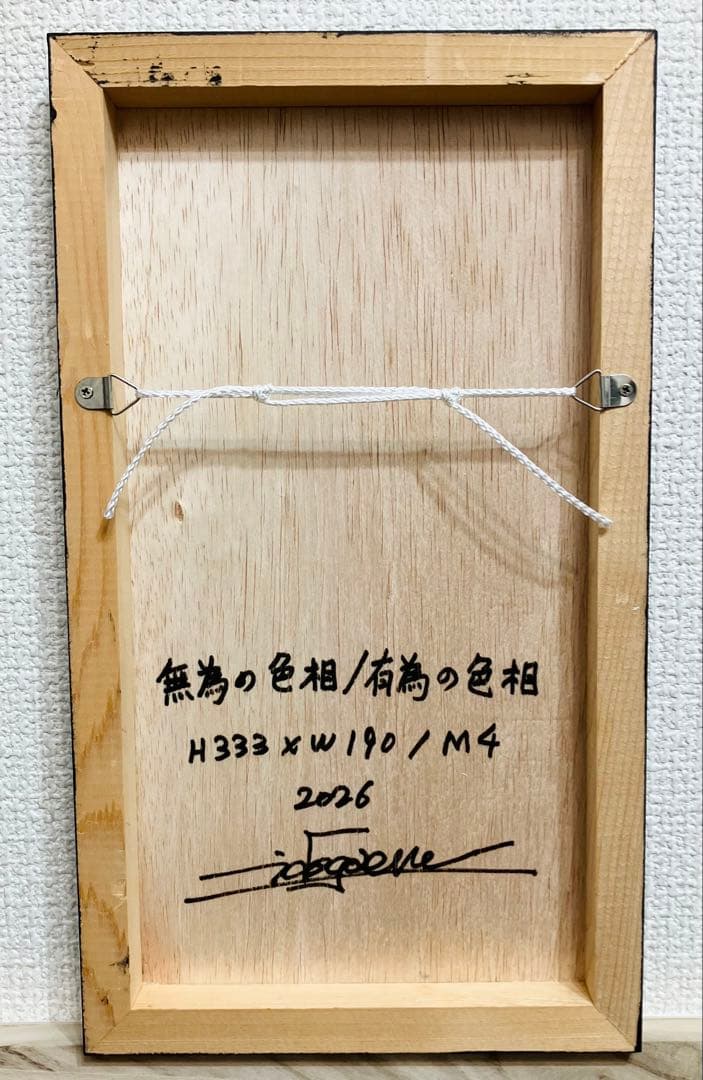 無為の色相/有為の色相
H333×W190/M4
2026